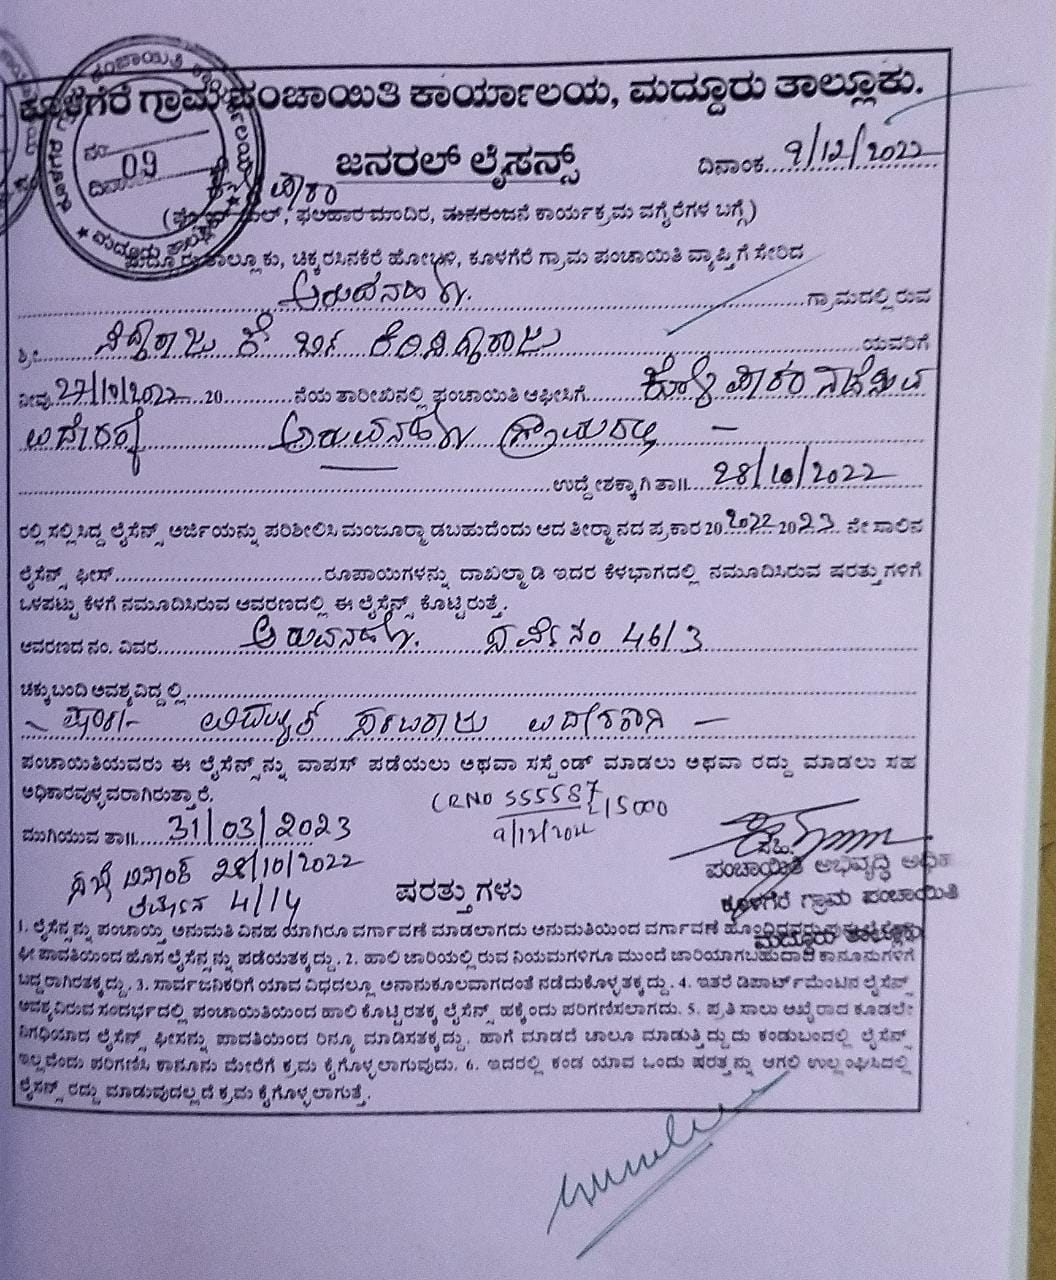 ಕೂಳಗೆರೆ ಗ್ರಾಮ ಪಂಚಾಯಿತಿ ಕಾರ್ಯಾಲಯ, ಮದ್ದೂರು ತಾಲ್ಲೂಕು.
ನಂ. 09
ಜನರಲ್ ಲೈಸನ್ಸ್
ದಿನಾಂಕ 9/12/2022
ಫಲಹಾರ ಮಂದಿರ, ಮನರಂಜನೆ ಕಾರ್ಯಕ್ರಮ ವಗೈರೆಗಳ ಬಗ್ಗೆ)
ಮದ್ದೂರು ತಾಲ್ಲೂಕು, ಚಿಕ್ಕರಸಿನಕೆರೆ ಹೋಬಳಿ, ಕೂಳಗೆರೆ ಗ್ರಾಮ ಪಂಚಾಯಿತಿ ವ್ಯಾಪ್ತಿಗೆ ಸೇರಿದ
ಗ್ರಾಮದಲ್ಲಿರುವ
ಶ್ರೀ ಸಿದ್ದರಾಜು ಕೆ ಬಿನ್ ಕೆಂಪಸಿದ್ದರಾಜು ಯವರಿಗೆ
ನೀವು 27/10/2022 20 ನೆಯ ತಾರೀಖಿನಲ್ಲಿ ಪಂಚಾಯಿತಿ ಆಫೀಸಿಗೆ ಕೋಳಿ ಫಾರಂ ನಡೆಸುವ
ಗ್ರಾಮದಲ್ಲಿ -
ಉದ್ದೇಶಕ್ಕಾಗಿ ತಾ॥ 28/10/2022
ರಲ್ಲಿ ಸಲ್ಲಿಸಿದ್ದ ಲೈಸೆನ್ಸ್ ಅರ್ಜಿಯನ್ನು ಪರಿಶೀಲಿಸಿ ಮಂಜೂರ್ಮಾಡಬಹುದೆಂದು ಆದ ತೀರ್ಮಾನದ ಪ್ರಕಾರ 20 2022 2023 ನೇ ಸಾಲಿನ
ಲೈಸೆನ್ಸ್ ಫೀಸ್ ರೂಪಾಯಿಗಳನ್ನು ದಾಖಲ್ಮಾಡಿ ಇದರ ಕೆಳಭಾಗದಲ್ಲಿ ನಮೂದಿಸಿರುವ ಷರತ್ತುಗಳಿಗೆ
ಒಳಪಟ್ಟು ಕೆಳಗೆ ನಮೂದಿಸಿರುವ ಆವರಣದಲ್ಲಿ ಈ ಲೈಸೆನ್ಸ್ ಕೊಟ್ಟಿರುತ್ತೆ.
ಆವರಣದ ನಂ. ವಿವರ ಸರ್ವೆ ನಂ 46/3
ಚಕ್ಕುಬಂದಿ ಅವಶ್ಯವಿದ್ದಲ್ಲಿ
ಪಂಚಾಯಿತಿಯವರು ಈ ಲೈಸೆನ್ಸ್‌ನ್ನು ವಾಪಸ್ ಪಡೆಯಲು ಅಥವಾ ಸಸ್ಪೆಂಡ್ ಮಾಡಲು ಅಥವಾ ರದ್ದು ಮಾಡಲು ಸಹ
ಅಧಿಕಾರವುಳ್ಳವರಾಗಿರುತ್ತಾರೆ.
CRNO 555587 15000
9/12/2022
ಮುಗಿಯುವ ತಾ॥ 31/03/2023
ಸಭೆ ದಿನಾಂಕ 28/10/2022
4/14
ಸಹಿ.
ಪಂಚಾಯಿತಿ ಅಭಿವೃದ್ಧಿ ಅಧಿಕ
ಕೂಳಗೆರೆ ಗ್ರಾಮ ಪಂಚಾಯಿತಿ
ಮದ್ದೂರು ತಾಲ್ಲೂಕು
ಷರತ್ತುಗಳು
1. ಲೈಸೆನ್ಸನ್ನು ಪಂಚಾಯ್ತಿ ಅನುಮತಿ ವಿನಹ ಯಾಗಿರೂ ವರ್ಗಾವಣೆ ಮಾಡಲಾಗದು ಅನುಮತಿಯಿಂದ ವರ್ಗಾವಣೆ
ಫೀ ಪಾವತಿಯಿಂದ ಹೊಸ ಲೈಸೆನ್ಸನ್ನು ಪಡೆಯತಕ್ಕದ್ದು. 2. ಹಾಲಿ ಜಾರಿಯಲ್ಲಿರುವ ನಿಯಮಗಳಿಗೂ ಮುಂದೆ ಜಾರಿಯಾಗಬಹುದಾದ ಕಾನೂನುಗಳಿಗೆ
ಬದ್ದರಾಗಿರತಕ್ಕದ್ದು. 3. ಸಾರ್ವಜನಿಕರಿಗೆ ಯಾವ ವಿಧದಲ್ಲೂ ಅನಾನುಕೂಲವಾಗದಂತೆ ನಡೆದುಕೊಳ್ಳತಕ್ಕದ್ದು. 4. ಇತರೆ ಡಿಪಾರ್ಟ್‌ಮೆಂಟಿನ ಲೈಸೆನ್ಸ್
ಅವಶ್ಯವಿರುವ ಸಂದರ್ಭದಲ್ಲಿ ಪಂಚಾಯಿತಿಯಿಂದ ಹಾಲಿ ಕೊಟ್ಟಿರತಕ್ಕ ಲೈಸೆನ್ಸ್ ಹಕ್ಕೆಂದು ಪರಿಗಣಿಸಲಾಗದು. 5. ಪ್ರತಿ ಸಾಲು ಆಖೈರಾದ ಕೂಡಲೇ
ನಿಗಧಿಯಾದ ಲೈಸೆನ್ಸ್ ಫೀಸನ್ನು ಪಾವತಿಯಿಂದ ರಿನ್ಯೂ ಮಾಡಿಸತಕ್ಕದ್ದು. ಹಾಗೆ ಮಾಡದೆ ಚಾಲೂ ಮಾಡುತ್ತಿದ್ದುದು ಕಂಡುಬಂದಲ್ಲಿ ಲೈಸೆನ್ಸ್
ಇಲ್ಲವೆಂದು ಪರಿಗಣಿಸಿ ಕಾನೂನು ಮೇರೆಗೆ ಕ್ರಮ ಕೈಗೊಳ್ಳಲಾಗುವುದು. 6. ಇದರಲ್ಲಿ ಕಂಡ ಯಾವ ಒಂದು ಷರತ್ತನ್ನು ಆಗಲಿ ಉಲ್ಲಂಘಿಸಿದಲ್ಲಿ
ಲೈಸನ್ಸ್ ರದ್ದು ಮಾಡುವುದಲ್ಲದೆ ಕ್ರಮ ಕೈಗೊಳ್ಳಲಾಗುತ್ತೆ.